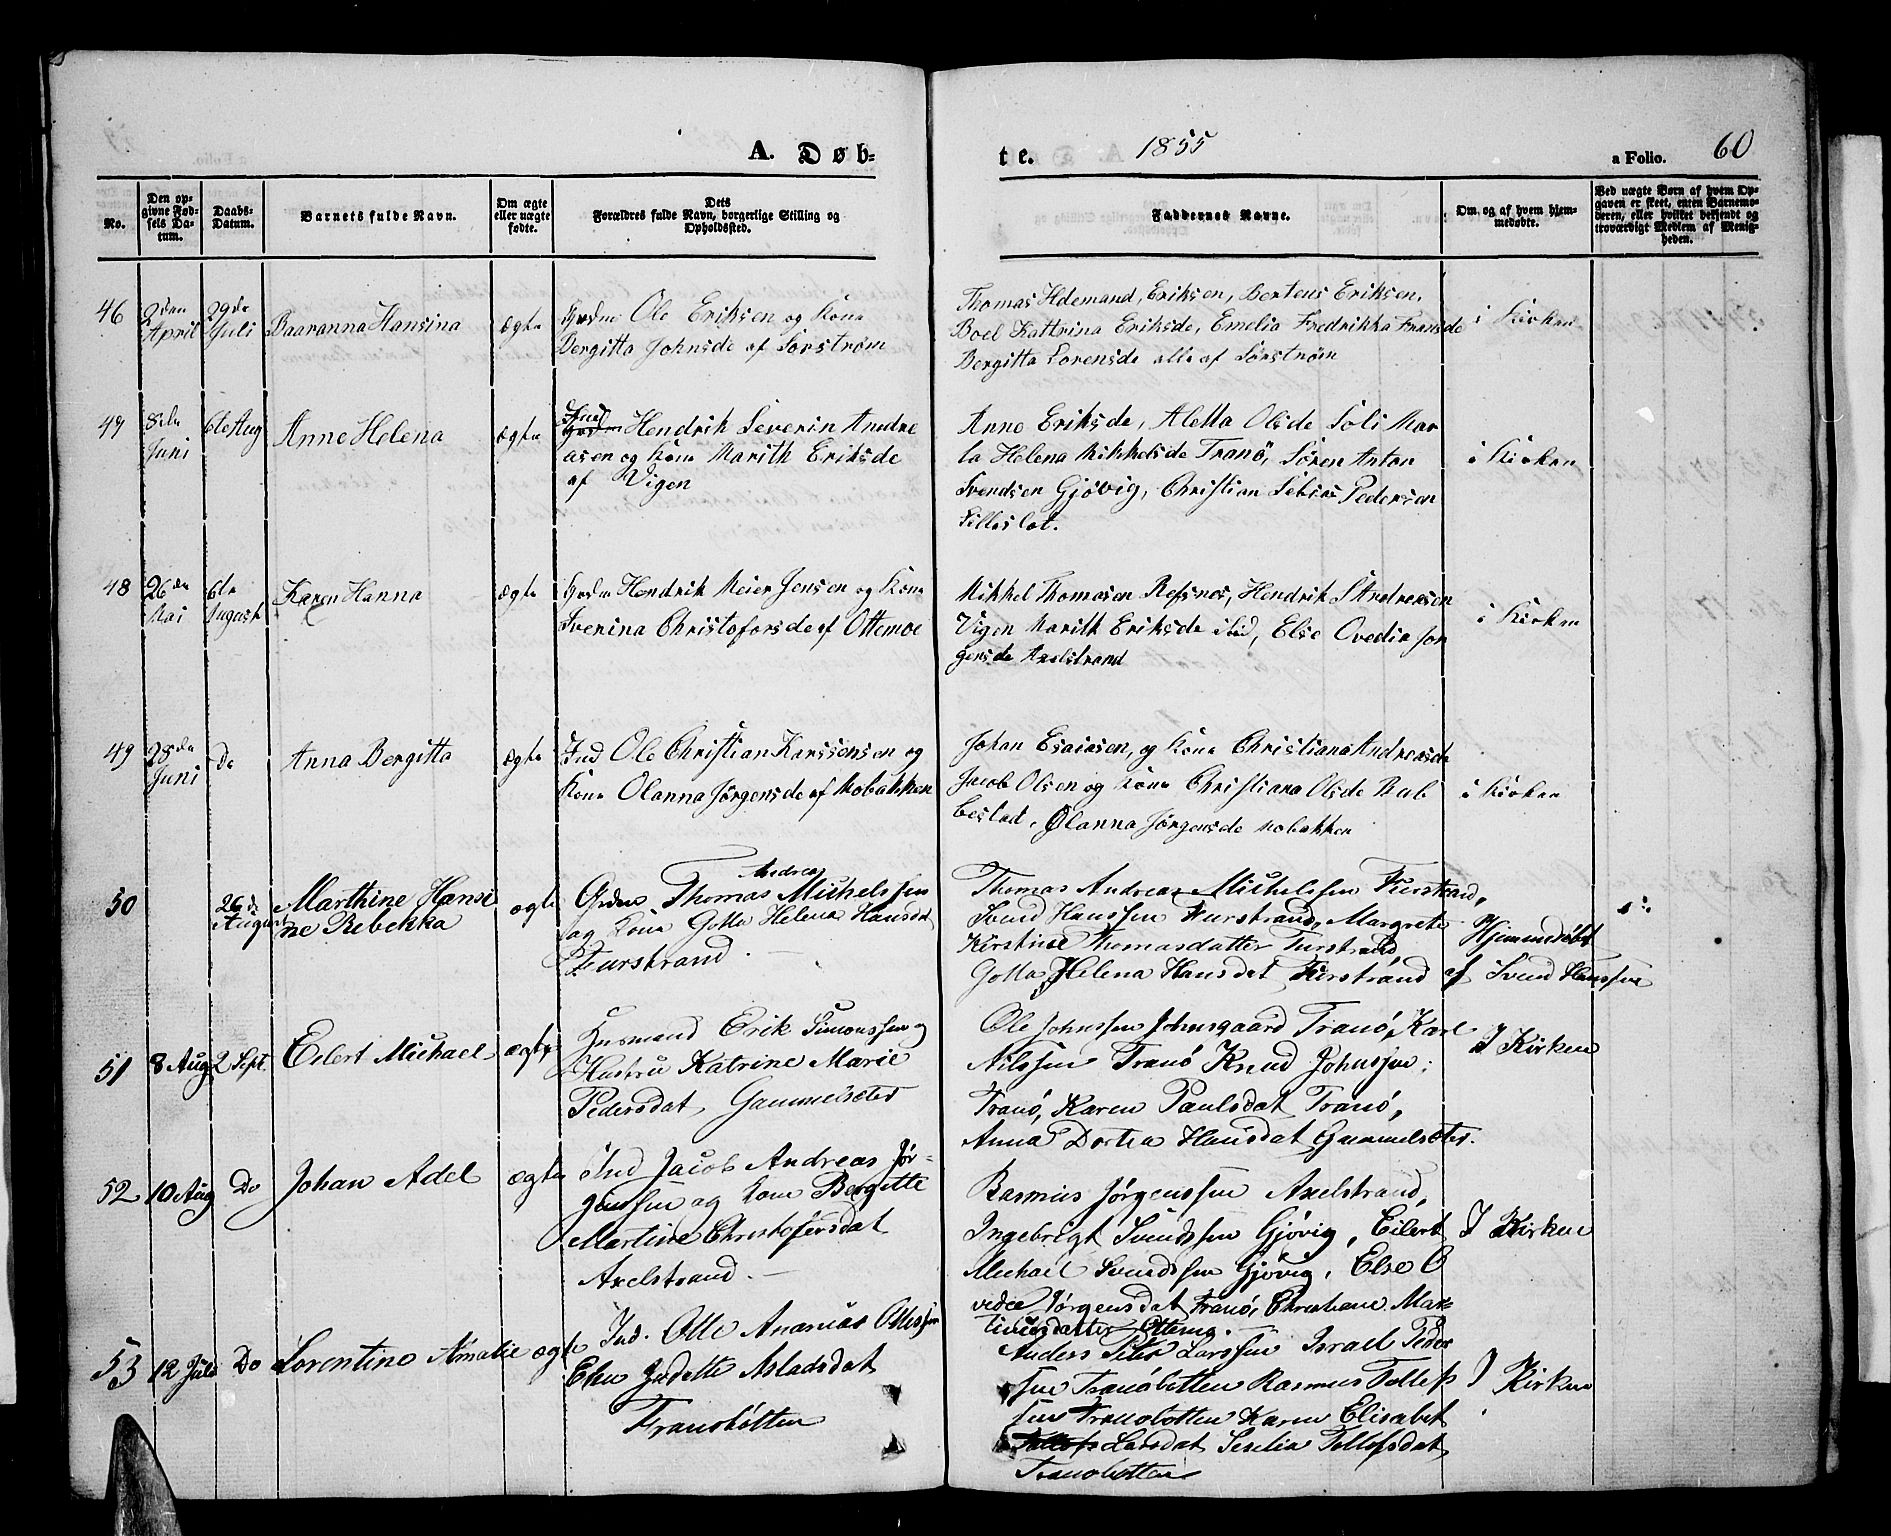 A. Døb-
te.
1855
a Folio.
60
No.
Den op-
givne Fød-
sels Da-
tum.
Daabs-
Datum.
Barnets fulde Navn.
Om ægte
eller uægte
fødte.
Dets
Forældres fulde Navn, borgerlige Stilling og
Opholdssted.
Faddernes Navne.
Om og af hvem hjem-
medøbte.
Ved uægte Børn af hvem Op-
gaven er skeet, enten Barnemo-
deren, eller hvilket bekjendt og
troværdigt Medlem af Menig-
heden.
46
2den
April
29de
Juli
Baaranna Hansina
ægte
Grdm Ole Eriksen og Kona
Bergitta Johnsde af Sørstrøm
Thomas Hdemand, Eriksen, Berteus Eriksen,
Boel Kattrina Eriksde, Emelia Fredrikka Fransde
Bergitta Lorensde alle af Sørstrøm
i Kirken
47
8de
Juni
6te Aug
Anne Helena
ægte
Ind
Hendrik Severin Andre
asen og Kona Marith Eriksde
af Vigen
Anne Eriksde, Aletta Olsde Soli Mar
ta Helena Mikkelsde Tranö, Sören Anton
Svendsen Gjövig, Christian Pedersen
Silleslet.
i Kirken
48
26de
Mai
6te
August
Karen Hanna
ægte
Grdm Hendrik Meier Jensen og Kona
Sverina Christofersde af Ottemoe
Mikkel Thomasen Refsnes, Hendrik S Andreasen
Vigen Marith Eriksde ibid, Else Ovedia Jør
gensde Axelstrand
i Kirken
49
28de
Juni
Do
Anna Bergitta
ægte
Ind Ole Christian Karssensen og
Kona Olanna Jørgensde af Mobakken
Johan Esaiasen, og Kona Christiana Andreasde
Jacob Olsen og Kona Christiana Olsde Kab
beslet, Olanna Jørgensde Mobakken
i Kirken
50
26de
August
Marthine Hansi
ne Rebekka
ægte
Andreas
Grdm Thomas Michelssen
og Kona Golla Helena Hansdat
Furstrand.
Thomas Andreas Michelssen Furstrand,
Svend Hanssen Furstrand, Margrete
Kirstine Thomasdatter Furstrand
Golla Helena Hansdat Furstrand
Hjemmedøbt
af Svend Hanssen
51
8 Aug
2 Sept.
Eilert Michael
ægte
Husmand Erik Simonssen og
Hustru Katrine Marie
Pedersdat, Gammelseter
Ole Johnssen Johnsgaard Tranö, Karl
Nilssen Tranö Knud Johnssen,
Tranö, Karen Paulsdat Tranö,
Anna Dortea Hansdat Gammelseter.
I Kirken
52
10 Aug
Do
Johan Adel
ægte
Ind Jacob Andreas Jör-
genssen og Kone Bergitte
Martine Christofersdat
Axelstrand.
Rasmus Jørgenssen Axelstrand,
Ingebrigt Svendssen Gjövig, Eilert
Michael Svendssen Gjövig, Else O
vedee Jørgensdat Tranö, Christiane Mar-
tinusdatter
I Kirken
53
12 Juli
Do
Lorentine Amalie
ægte
Ind. Olle Ananias Ollessen
Elen Judette Asladsdat
Tranobotten
Anders Larssen Israel Peder
ssen Tranöbotten Rasmus Tollefs
sen Tranobotten Karen Elisabet
Larsdat, Seselia Tollefsdat,
Tranobotten
I Kirken